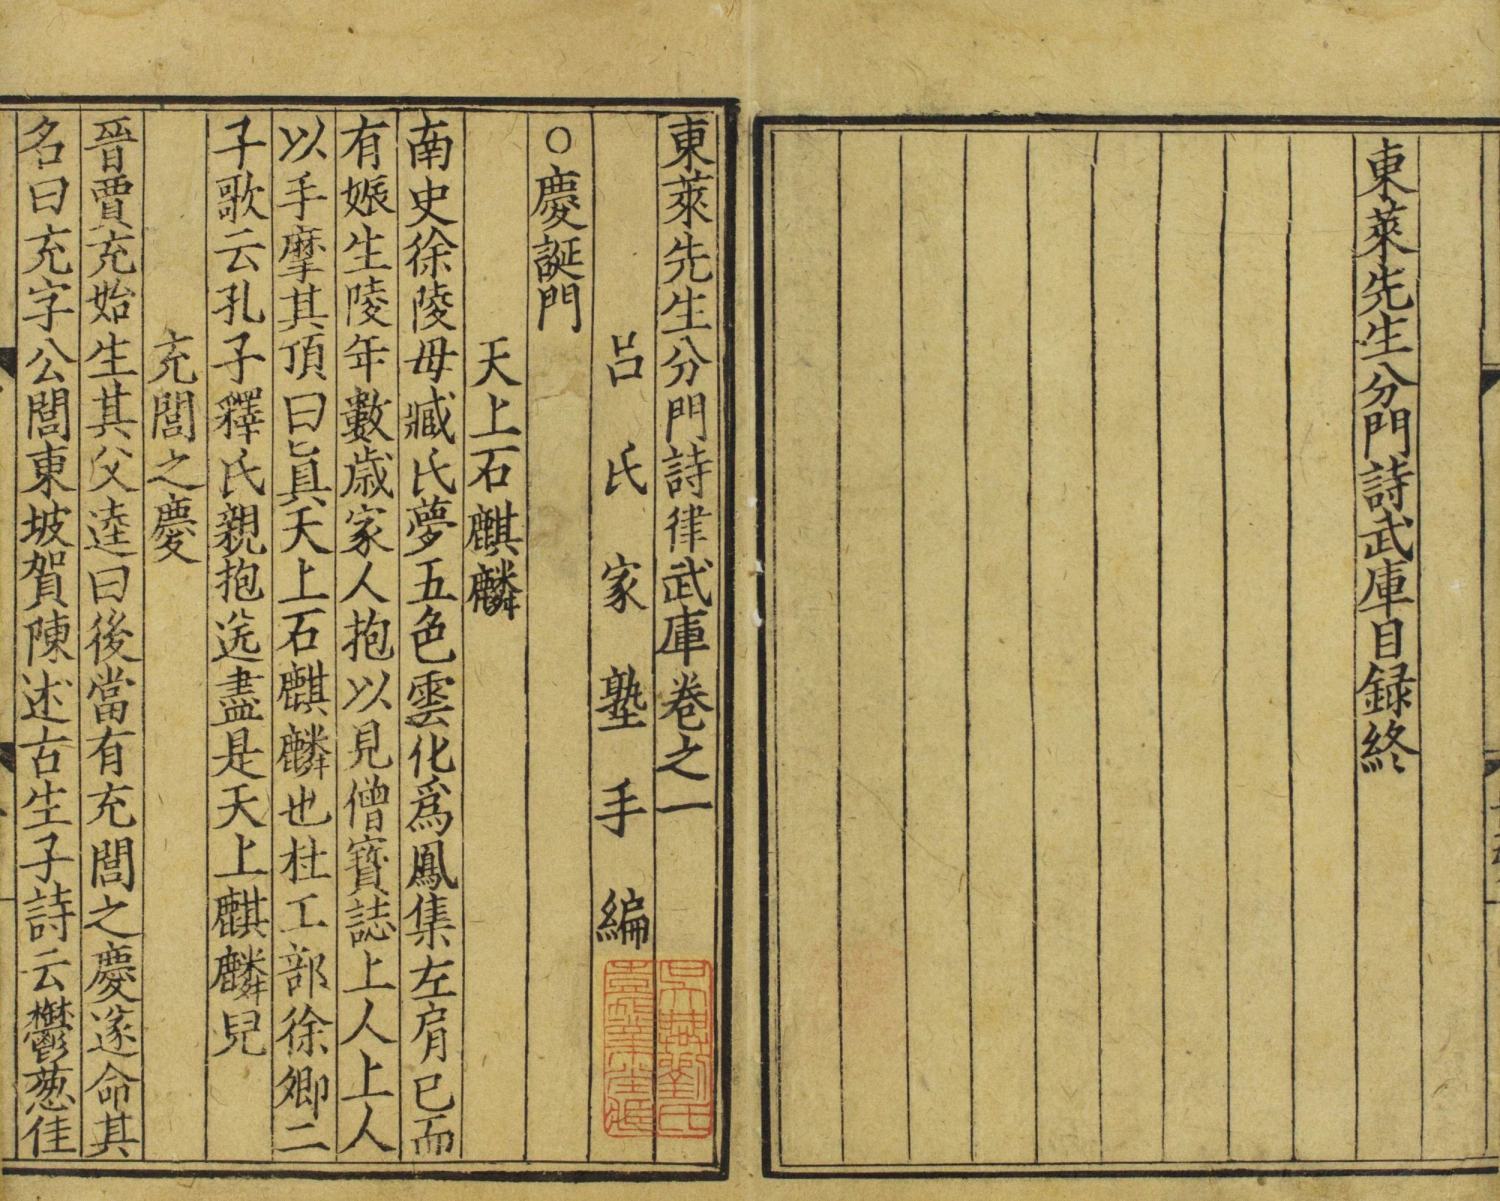 東萊先生分門詩武庫目録終
東萊先生分門詩律武庫卷之一
呂氏家塾手編
○慶誕門
天上石麒麟
南史徐陵母臧氏夢五色雲化爲鳳集左肩已而
有娠生陵年數歳家人抱以見僧寶誌上人上人
以手摩其頂曰眞天上石麒麟也杜工部徐卿二
子歌云孔子釋氏親抱送盡是天上麒麟兒
充閭之慶
晉賈充始生其父逵曰後當有充閭之慶遂命其
名曰充字公閭東坡賀陳述古生子詩云鬱葱佳